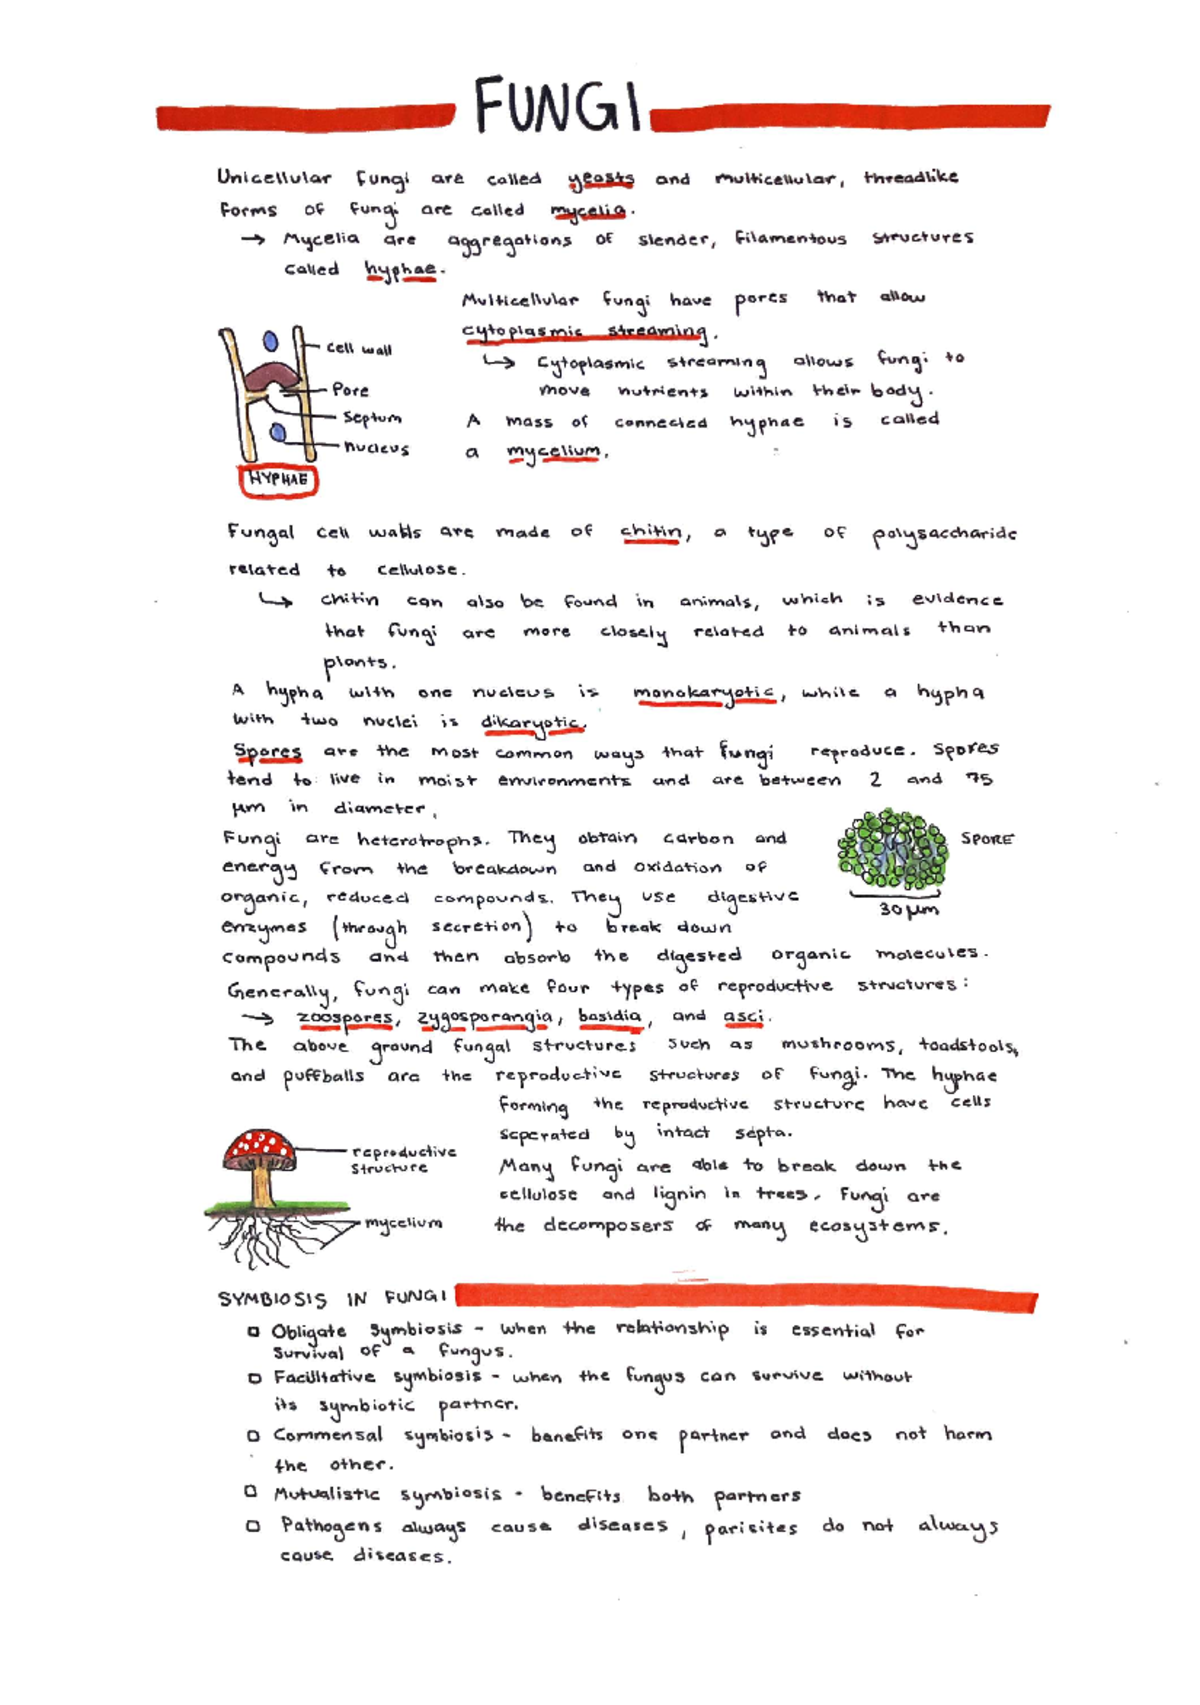 FUNGI
Unicellular fungi are called yeasts and multicellular, threadlike
forms of fungi are called mycelia.
→ Mycelia are aggregations of slender, filamentous structures
called hyphae.
Multicellular fungi have pores that allow
cytoplasmic streaming.
↳ Cytoplasmic streaming allows fungi to
move nutrients within their body.
A mass of connected hyphae is called
a mycelium.
cell wall
Pore
Septum
nucleus
HYPHAE
Fungal cell walls are made of chitin, a type of polysaccharide
related to cellulose.
↳ chitin can also be found in animals, which is evidence
that fungi are more closely related to animals than
plants.
A hypha with one nucleus is monokaryotic, while a hypha
with two nuclei is dikaryotic.
Spores are the most common ways that fungi reproduce. Spores
tend to live in moist environments and are between 2 and 75
μm in diameter.
Fungi are heterotrophs. They obtain carbon and
energy from the breakdown and oxidation of
organic, reduced compounds. They use digestive
enzymes (through secretion) to break down
compounds and then absorb the digested organic molecules.
SPORE
30 μm
Generally, fungi can make four types of reproductive structures:
→ zoospores, zygosporangia, basidia, and asci.
The above ground fungal structures such as mushrooms, toadstools,
and puffballs are the reproductive structures of fungi. The hyphae
forming the reproductive structure have cells
seperated by intact septa.
Many fungi are able to break down the
cellulose and lignin in trees. Fungi are
the decomposers of many ecosystems.
reproductive
structure
mycelium
SYMBIOSIS IN FUNGI
Obligate symbiosis - when the relationship is essential for
survival of a fungus.
Facilitative symbiosis - when the fungus can survive without
its symbiotic partner.
Commensal symbiosis - benefits one partner and does not harm
the other.
Mutualistic symbiosis - benefits both partners
Pathogens always cause diseases, parisites do not always
cause diseases.